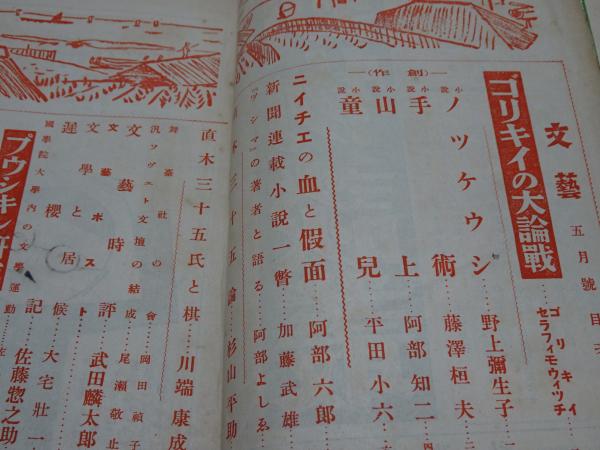 文藝 五月號 目次
ゴリキイの大論戰 ゴリキイ
セラフィモウィッチ
―(創作)―
ノツケウシ 野上彌生子
小説 手術 藤澤桓夫
小説 山上 阿部知二
小説 童兒 平田小六
ニイチエの血と假面 阿部六郎
新聞連載小説一瞥 加藤武雄
『ツシマ』の著者と語る 阿部よしゑ
直木三十五論 杉山平助
直木三十五氏と棋 川端康成
舞臺社の會 岡田禎子
汎ソヴェト文壇の結成 尾瀬敬止
文藝時評 武田麟太郎
文藝ポスト
文學と居候 大宅壯一
遲櫻記 佐藤惣之助
國學院大學内の文學運動
プウシキン研究